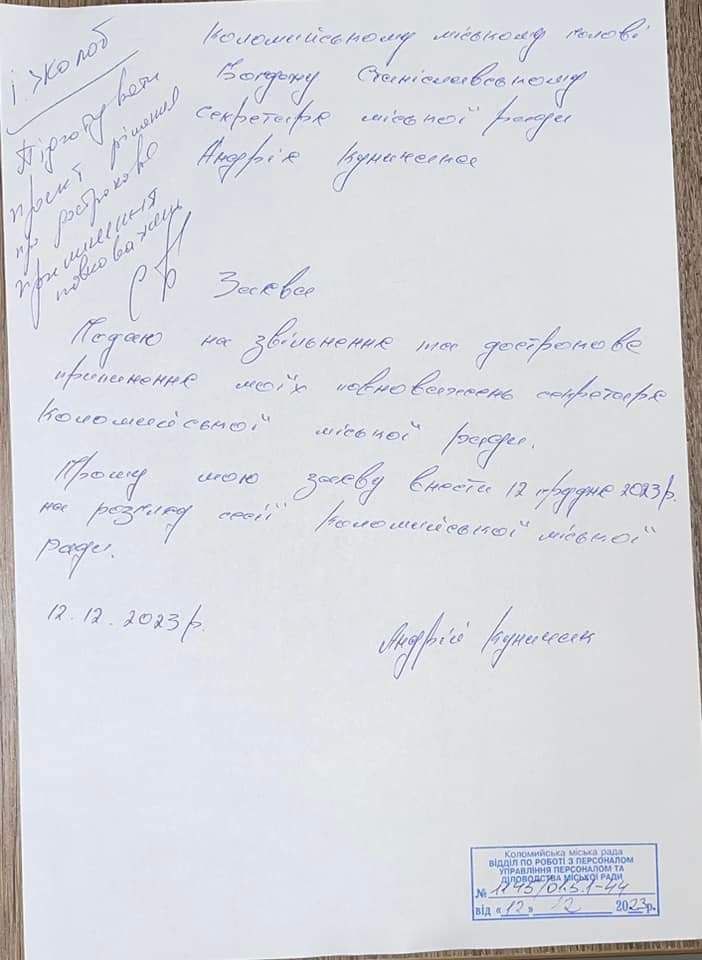 Коломийському міському голові
Богдану Станіславському
секретаря міської ради
Андрія Куничака
Підготувати
проєкт рішення
про дострокове
припинення
повноважень
Заява
Подаю на звільнення та дострокове
припинення моїх повноважень секретаря
Коломийської міської ради.
Прошу мою заяву внести 12 грудня 2023р.
на розгляд сесії Коломийської міської
ради.
12.12.2023р.
Андрій Куничак
Коломийська міська рада
ВІДДІЛ ПО РОБОТІ З ПЕРСОНАЛОМ
УПРАВЛІННЯ ПЕРСОНАЛОМ ТА
ДІЛОВОДСТВА МІСЬКОЇ РАДИ
№
від «12» 12 2023р.